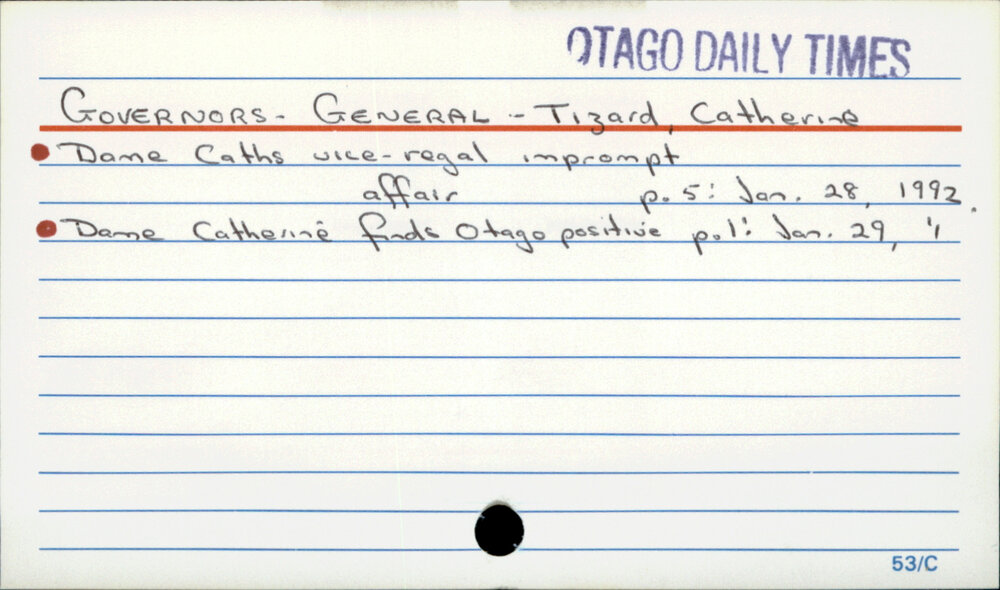 OTAGO DAILY TIMES
GOVERNORS - GENERAL - Tizard, Catherine
Dame Caths vice-regal imprompt
affair p. 5: Jan. 28, 1992.
Dame Catherine finds Otago positive p.1: Jan. 29, "
53/C